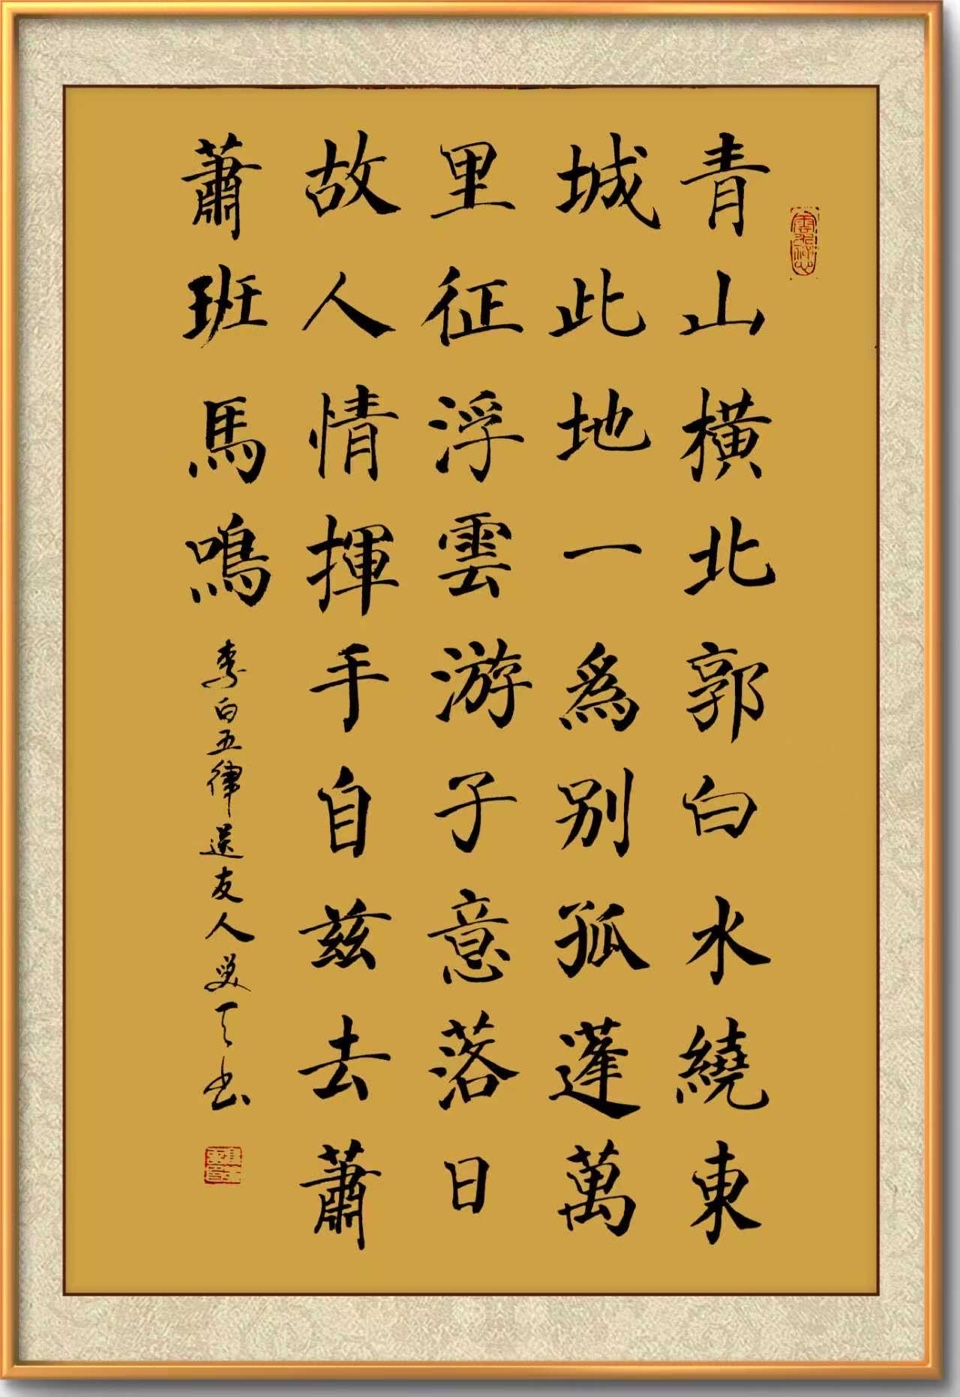 青山橫北郭白水繞東
城此地一為別孤蓬萬
里征浮雲游子意落日
故人情揮手自茲去蕭
蕭班馬鳴
李白五律送友人
书